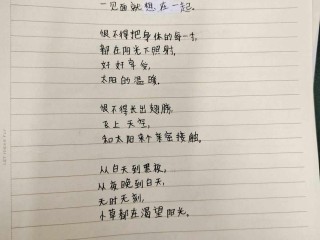 一见面就想在一起。
恨不得把身体的每一寸,
都在阳光下照射,
好好享受,
太阳的温暖。
恨不得长出翅膀,
飞上天空,
和太阳来个亲密接触。
从白天到黑夜,
从每晚到白天,
无时无刻,
小草都在渴望阳光。